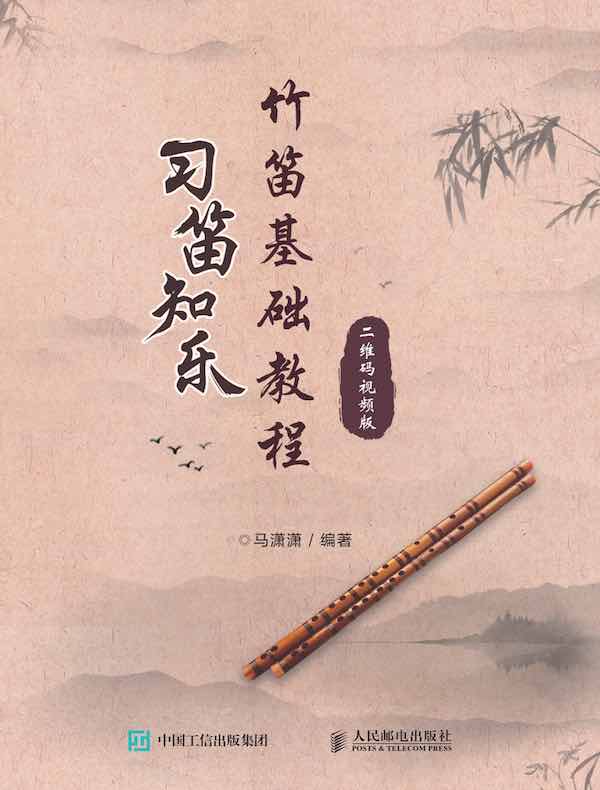 习笛知乐
竹笛基础教程
二维码视频版
马潇潇 / 编著
中国工信出版集团
人民邮电出版社
POSTS & TELECOM PRESS